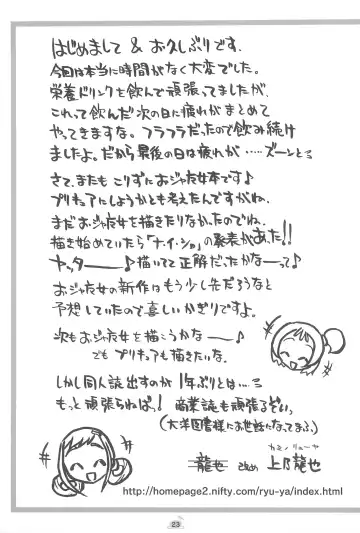 はじめまして & お久しぶりです.
今回は本当に時間がなく大変でした。
栄養ドリンクを飲んで頑張ってましたが、
これって飲んだ次の日に疲れがまとめて
やってきますな。フラフラだったので飲み続け
ましたよ。だから最後の日は疲れが……ズーンと
さて、またもこりずにおジャ女本です♪
プリキュアにしようかとも考えたんですがね、
まだおジャ女を描きたりなかったのでね、
描き始めていたら「ナ・イ・ショ」の発表があった!!
ヤッター――♪描いてて正解だったかな―って♪
おジャ女の新作はもう少し先だろうなと
予想していたので喜しいかぎりですよ。
次もおジャ女を描こうかな―♪
でもプリキュアも描きたいな。
しかし同人誌出すのが1年ぶりとは…
もっと頑張らねば!商業誌も頑張るぞい。
(大洋図書様にお世話になってまふ。)
龍也 改め 上乃龍也
カミノ リューヤ
http://homepage2.nifty.com/ryu-ya/index.html
23